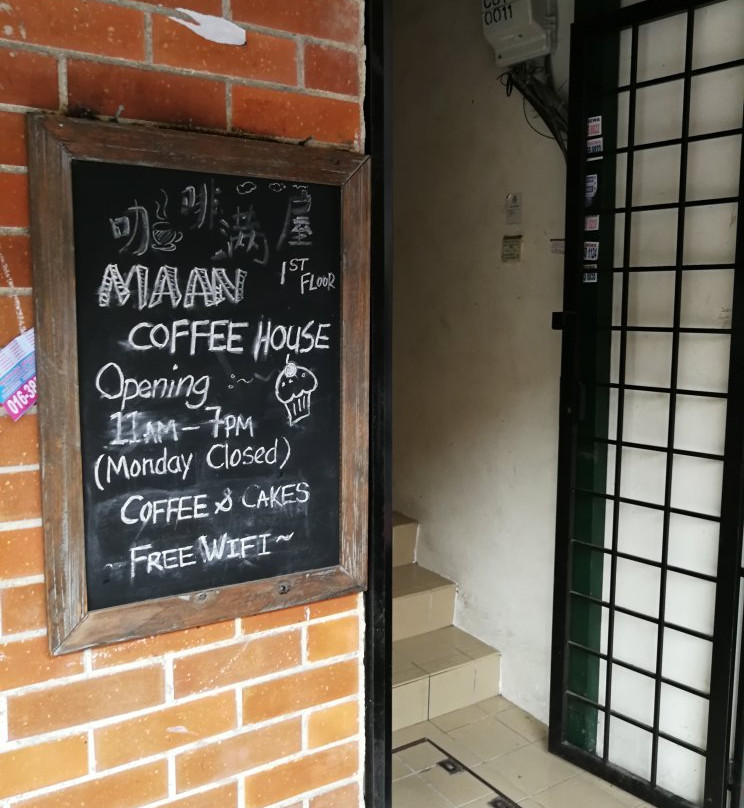 咖啡满屋
MAAN 1ST FLOOR
COFFEE HOUSE
Opening
11AM - 7PM
(Monday Closed)
COFFEE & CAKES
~ FREE WIFI ~
0011